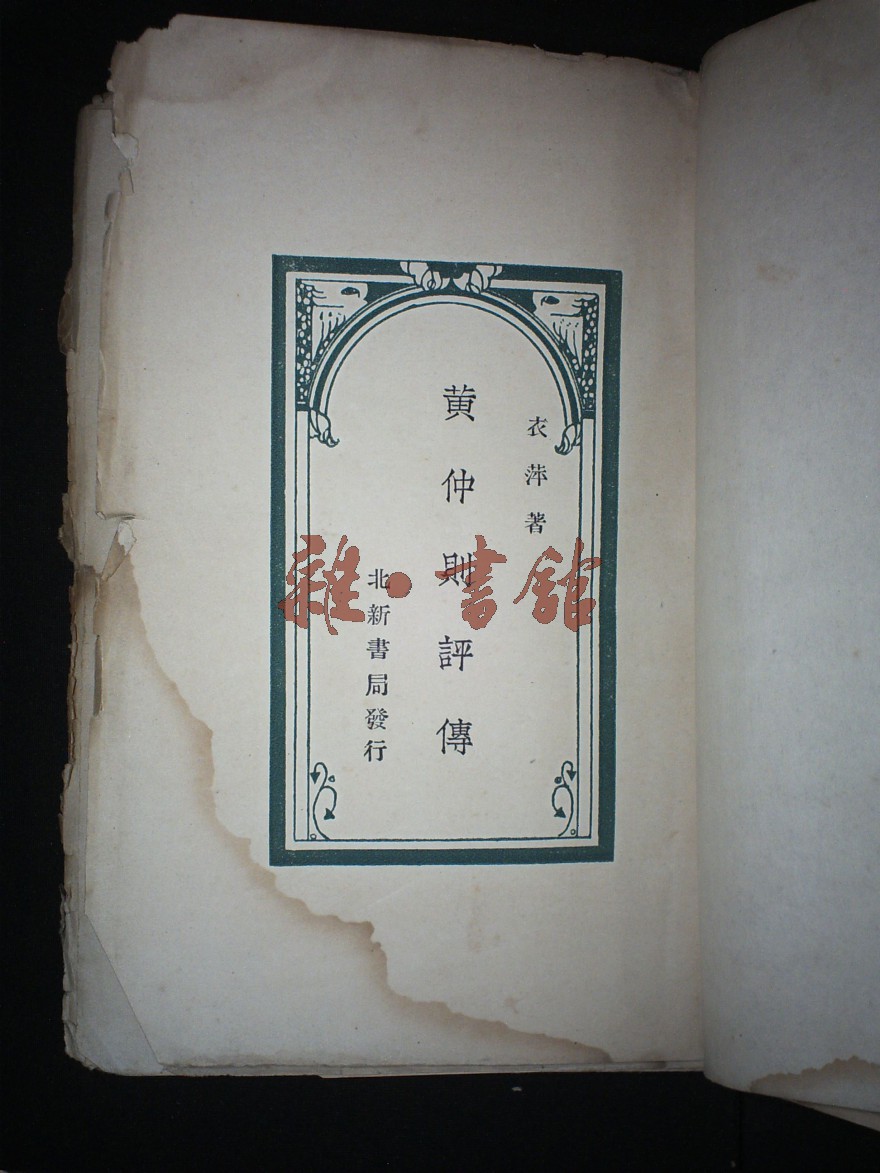 衣萍著
黄仲則評傳
北新書局發行
雜·書館